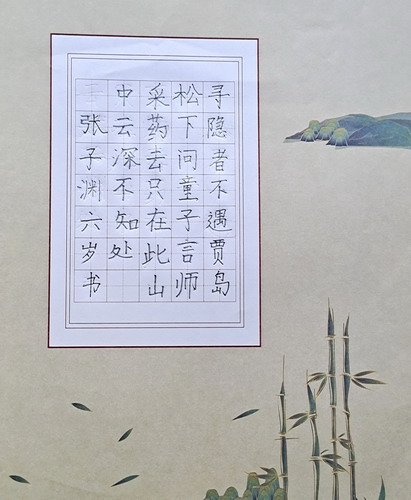 寻隐者不遇贾岛
松下问童子言师
采药去只在此山
中云深不知处
张子渊六岁书